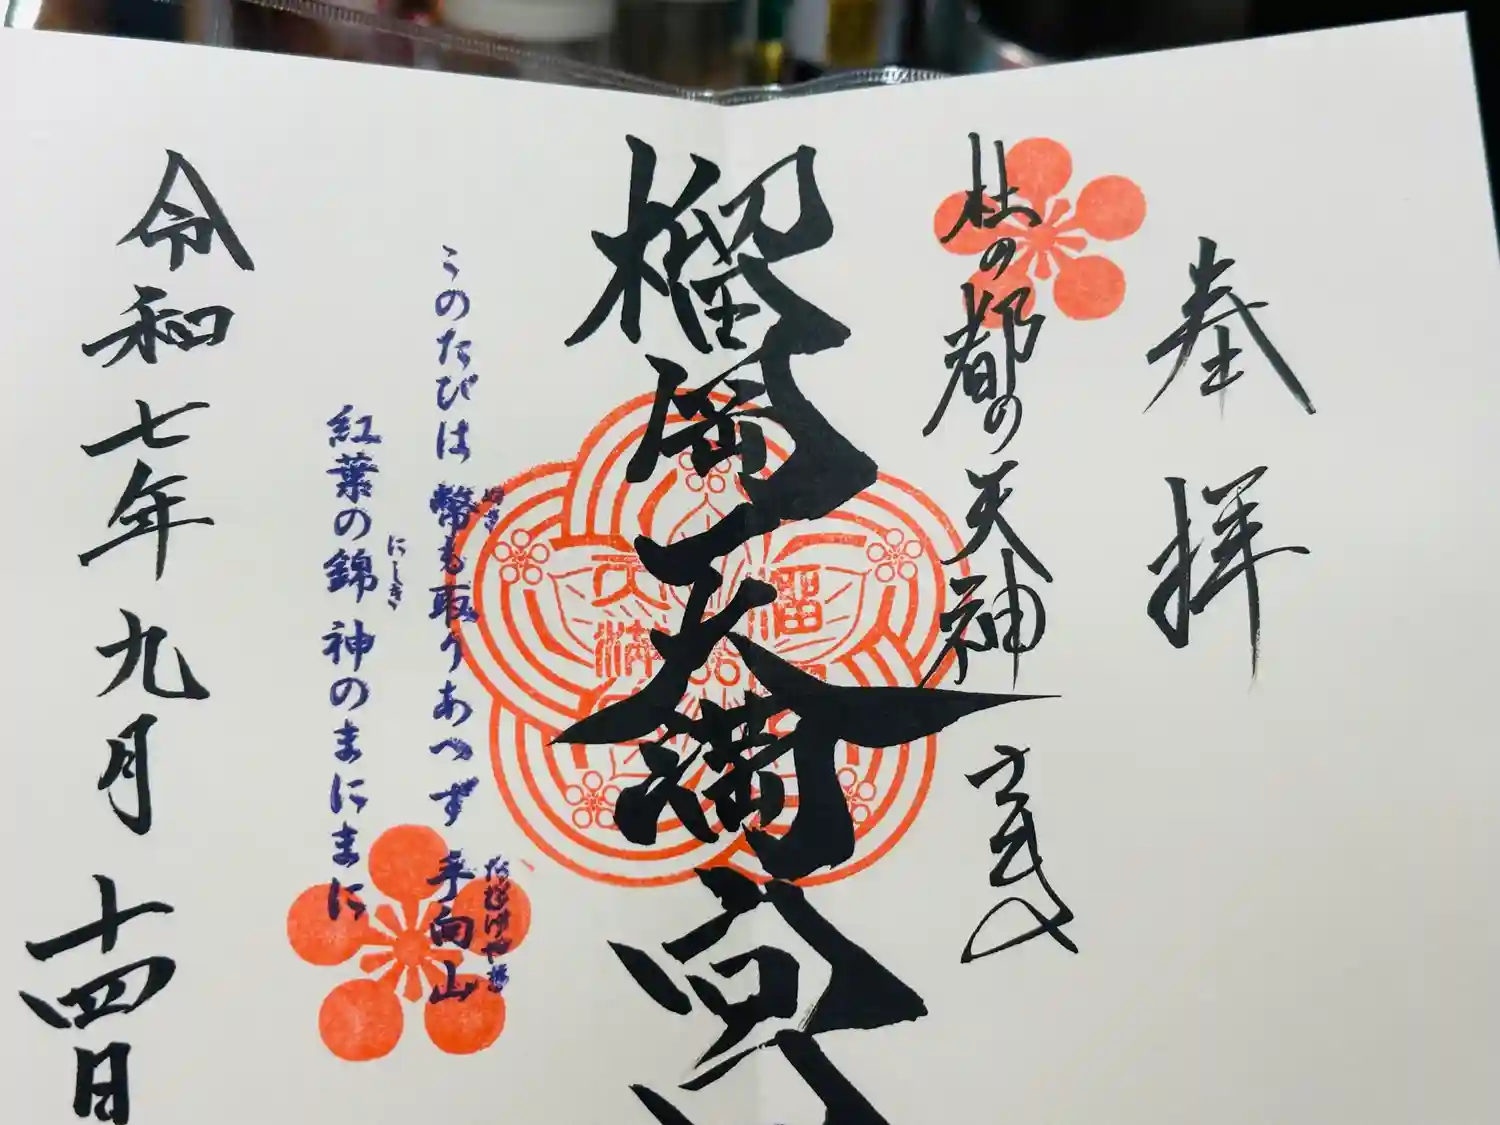 奉拝
杜の都の天神さま
榴岡天満宮
このたびは幣も取りあへず手向山
ぬさ
たむけやま
紅葉の錦神のまにまに
にしき
令和七年九月十四日